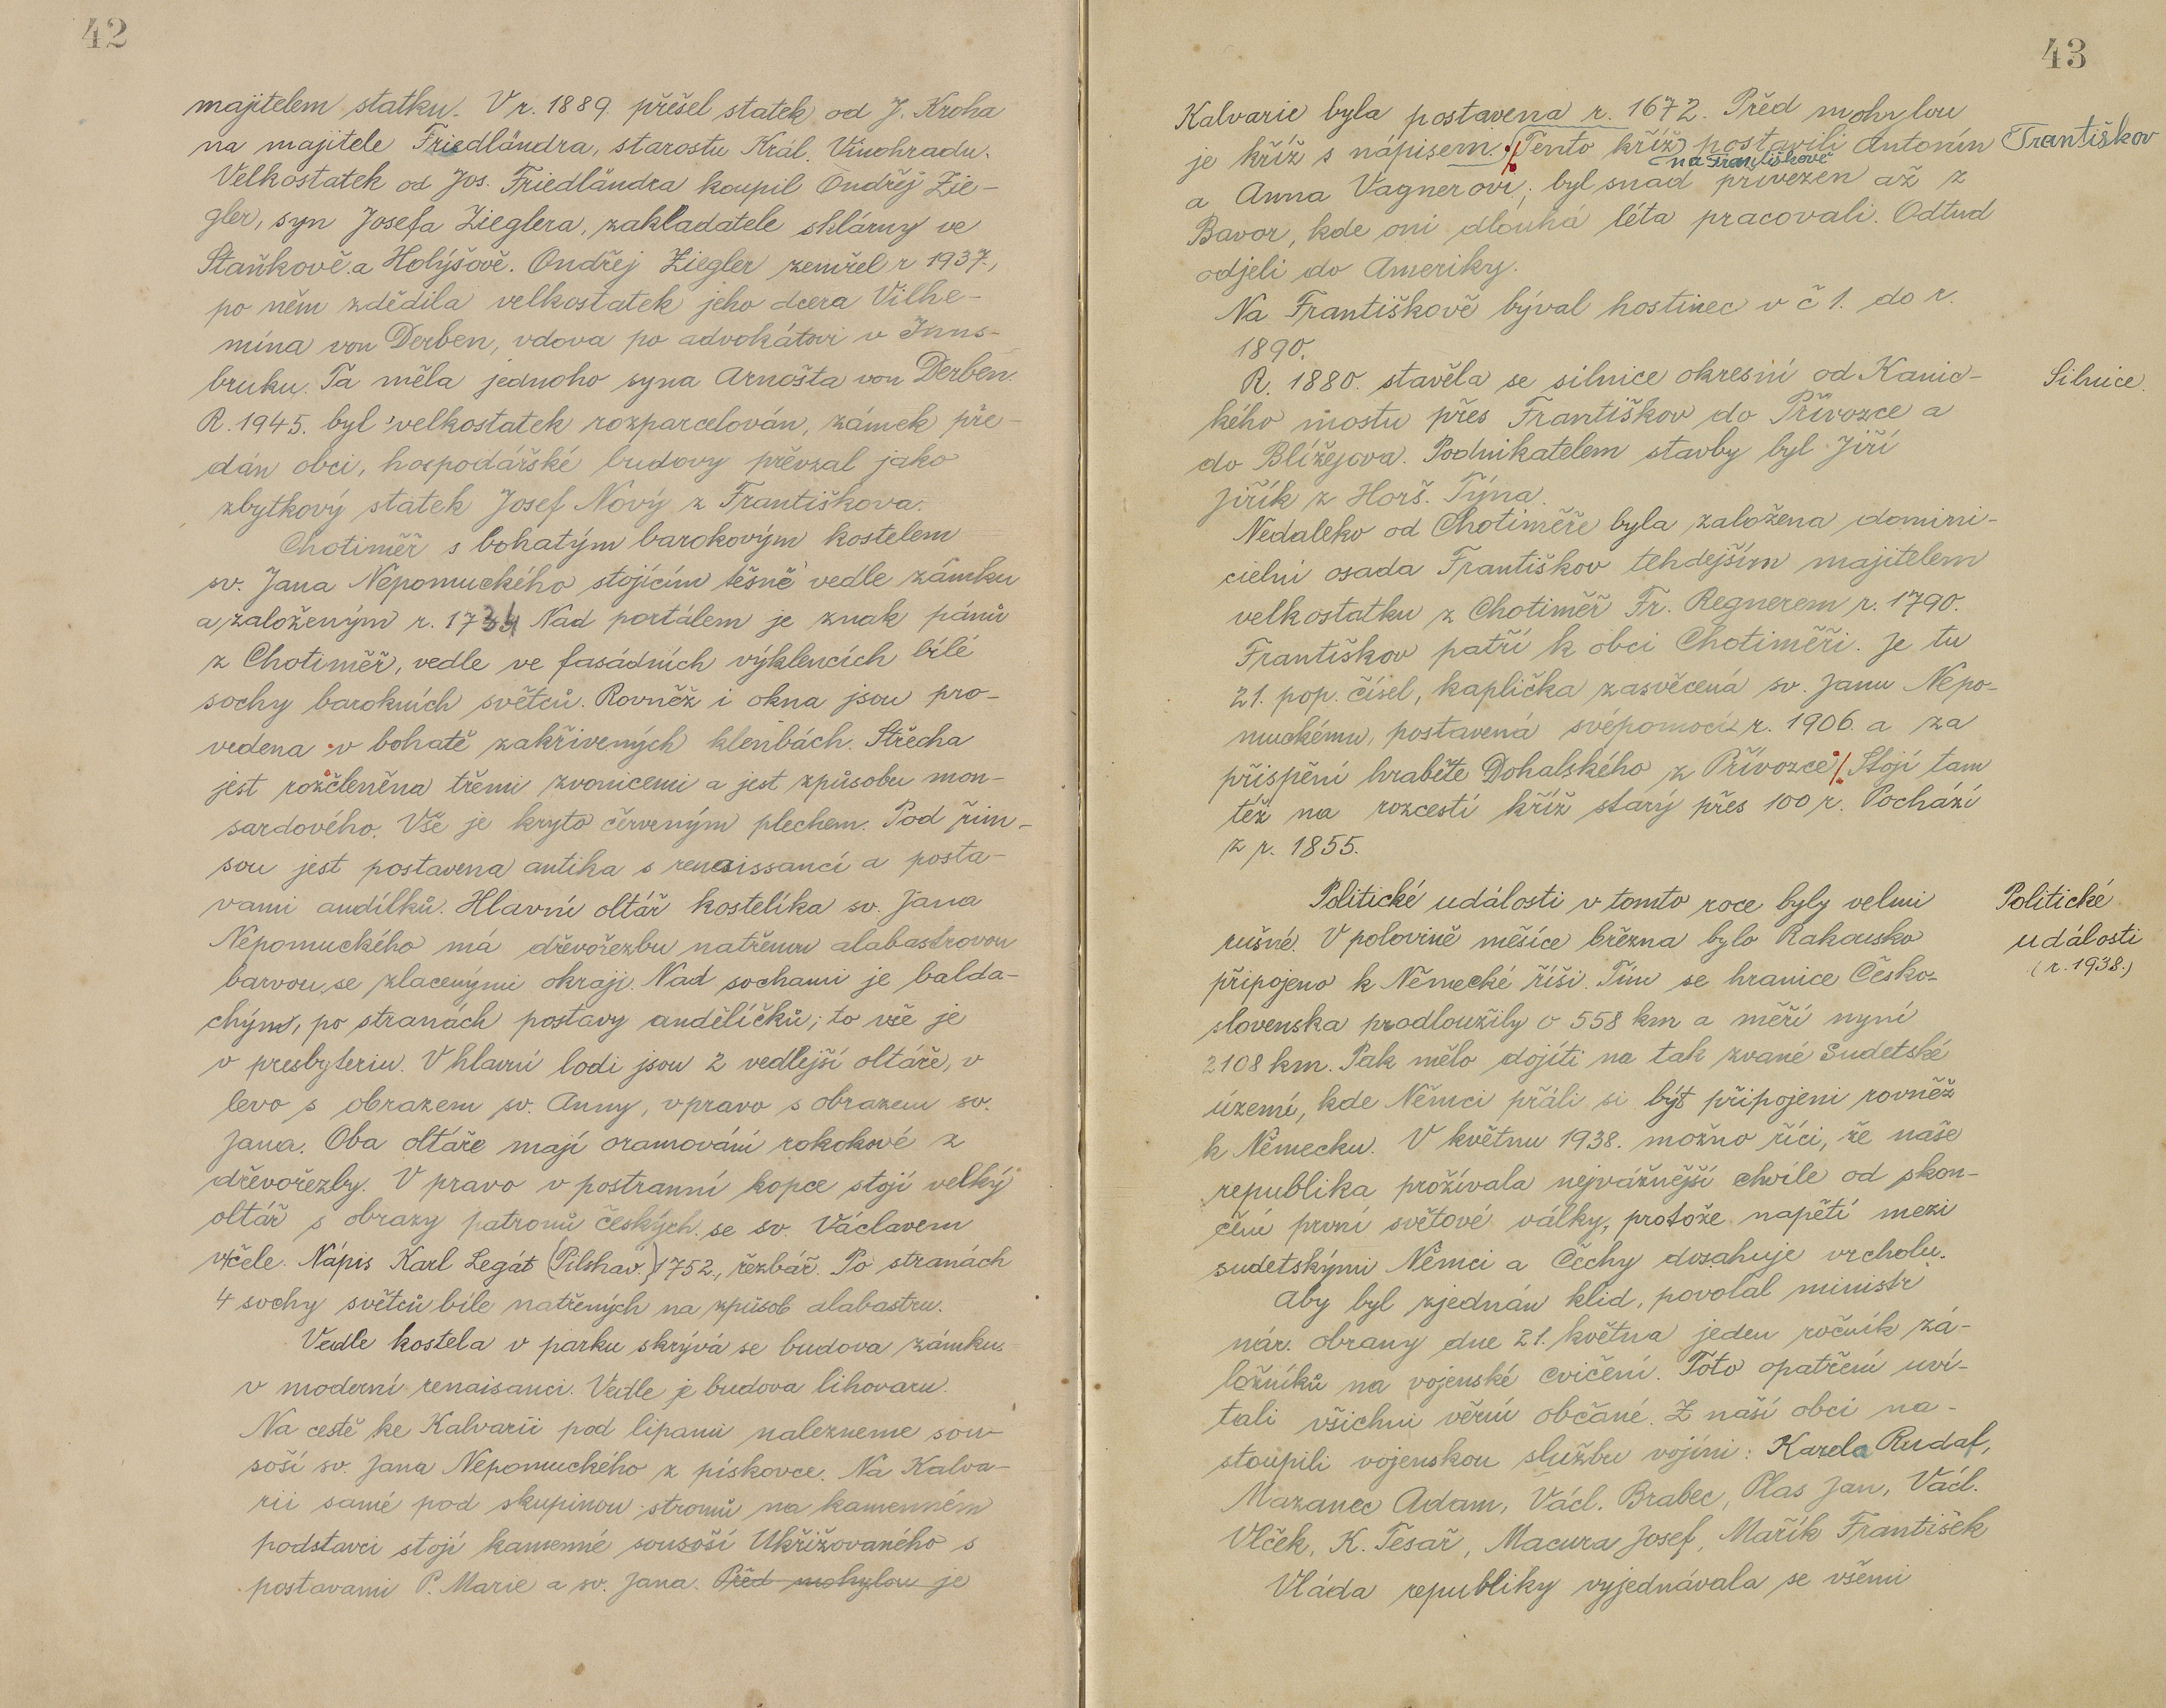 42
majitelem statku. V r. 1889. přešel statek od J. Kroha
na majitele Friedländra, starostu Král. Vinohradu.
Velkostatek od Jos. Friedländra koupil Ondřej Zie-
gler, syn Josefa Zieglera, zakladatele sklárny ve
Staňkově a Holýšově. Ondřej Ziegler zemřel r 1937.,
po něm zdědila velkostatek jeho dcera Vilhe-
mína von Derben, vdova po advokátovi v Inns-
bruku. Ta měla jednoho syna Arnošta von Derben.
R. 1945. byl velkostatek rozparcelován, zámek pře-
dán obci, hospodářské budovy převzal jako
zbytkový statek Josef Nový z Františkova.
Chotiměř s bohatým barokovým kostelem
sv. Jana Nepomuckého stojícím těsně vedle zámku
a založeným r. 1734 Nad portálem je znak pánů
z Chotiměř, vedle ve fasádních výklencích bílé
sochy barokních světců. Rovněž i okna jsou pro-
vedena v bohatě zakřivených klenbách. Střecha
jest rozčleněna třemi zvonicemi a jest způsobu mon-
sardového. Vše je kryto červeným plechem. Pod řím-
sou jest postavena antika s renaissancí a posta-
vami andílků. Hlavní oltář kostelíka sv. Jana
Nepomuckého má dřevořezbu natřenou alabastrovou
barvou se zlacenými okraji. Nad sochami je balda-
chýn, po stranách postavy andělíčků; to vše je
v presbyteriu. V hlavní lodi jsou 2 vedlejší oltáře, v
levo s obrazem sv. Anny, vpravo s obrazem sv.
Jana. Oba oltáře mají oramování rokokové z
dřevořezby. V pravo v postranní kopce stojí velký
oltář s obrazy patronů českých se sv. Václavem
včele. Nápis Karl Legát (Pilshav.) 1752., řezbář. Po stranách
4 sochy světců bíle natřených na způsob alabastru.
Vedle kostela v parku skrývá se budova zámku
v moderní renaisanci. Vedle je budova lihovaru.
Na cestě ke Kalvarii pod lipami nalezneme sou-
soší sv. Jana Nepomuckého z pískovce. Na Kalva-
rii samé pod skupinou stromů na kamenném
podstavci stojí kamenné sousoší Ukřižovaného s
postavami P. Marie a sv. Jana. Před mohylou je
43
Kalvarie byla postavena r. 1672. Před mohylou
je kříž s nápisem. Tento kříž postavili Antonín
Františkov
na Františkově
a Anna Vagnerovi; byl snad přivezen až z
Bavor, kde oni dlouhá léta pracovali. Odtud
odjeli do Ameriky.
Na Františkově býval hostinec v č 1. do r.
1890.
R. 1880. stavěla se silnice okresní od Kanic-
Silnice.
kého mostu přes Františkov do Přívozce a
do Blížejova. Podnikatelem stavby byl Jiří
Jiřík z Horš. Týna.
Nedaleko od Chotiměře byla založena domini-
cielní osada Františkov tehdejším majitelem
velkostatku z Chotiměř Fr. Regnerem r. 1790.
Františkov patří k obci Chotiměři. Je tu
21. pop. čísel, kaplička zasvěcená sv. Janu Nepo-
muckému, postavená svépomocí r. 1906. a za
přispění hraběte Dohalského z Přívozce. Stojí tam
též na rozcestí kříž starý přes 100 r. Pochází
z r. 1855.
Politické události v tomto roce byly velmi
Politické
události
(r. 1938.)
rušné. V polovině měsíce března bylo Rakousko
připojeno k Německé říši. Tím se hranice Česko-
slovenska prodloužily o 558 km a měří nyní
2108 km. Pak mělo dojíti na tak zvané Sudetské
území, kde Němci přáli si být připojeni rovněž
k Německu. V květnu 1938. možno říci, že naše
republika prožívala nejvážnější chvíle od skon-
čení první světové války, protože napětí mezi
sudetskými Němci a Čechy dosahuje vrcholu.
Aby byl zjednán klid, povolal ministr
nár. obrany dne 21. května jeden ročník zá-
ložníků na vojenské cvičení. Toto opatření uví-
tali všichni věrní občané. Z naší obci na-
stoupili vojenskou službu vojíni: Karela Rudof,
Mazanec Adam, Václ. Brabec, Plas Jan, Václ.
Vlček, K. Tesař, Macura Josef, Mařík František
Vláda republiky vyjednávala se všemi